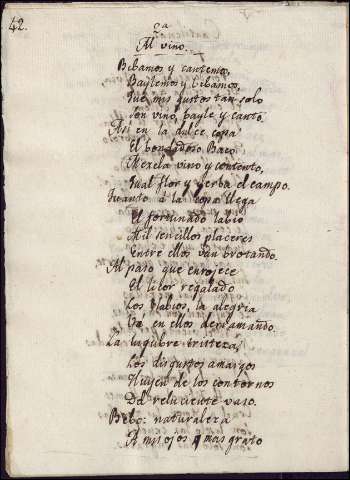 42.
Al vino.
Bebamos y cantemos,
Baylemos y bebamos,
Que mis gustos tan solo
Son vino, bayle y canto.
Asi en la dulce copa
El bondadoso Baco
Mezcla vino y contento,
Qual flor y yerba el campo.
Quanto á la copa llega
El fortunado labio
Mil sencillos placeres
Entre ellos van brotando.
Al paso que enrojece
El licor regalado
Los labios, la alegria
Va en ellos derramando.
La lugubre tristeza,
Los disgustos amargos
Huyen de los contornos
Del reluciente vaso.
Bebo: naturaleza
A mis ojos mas grato